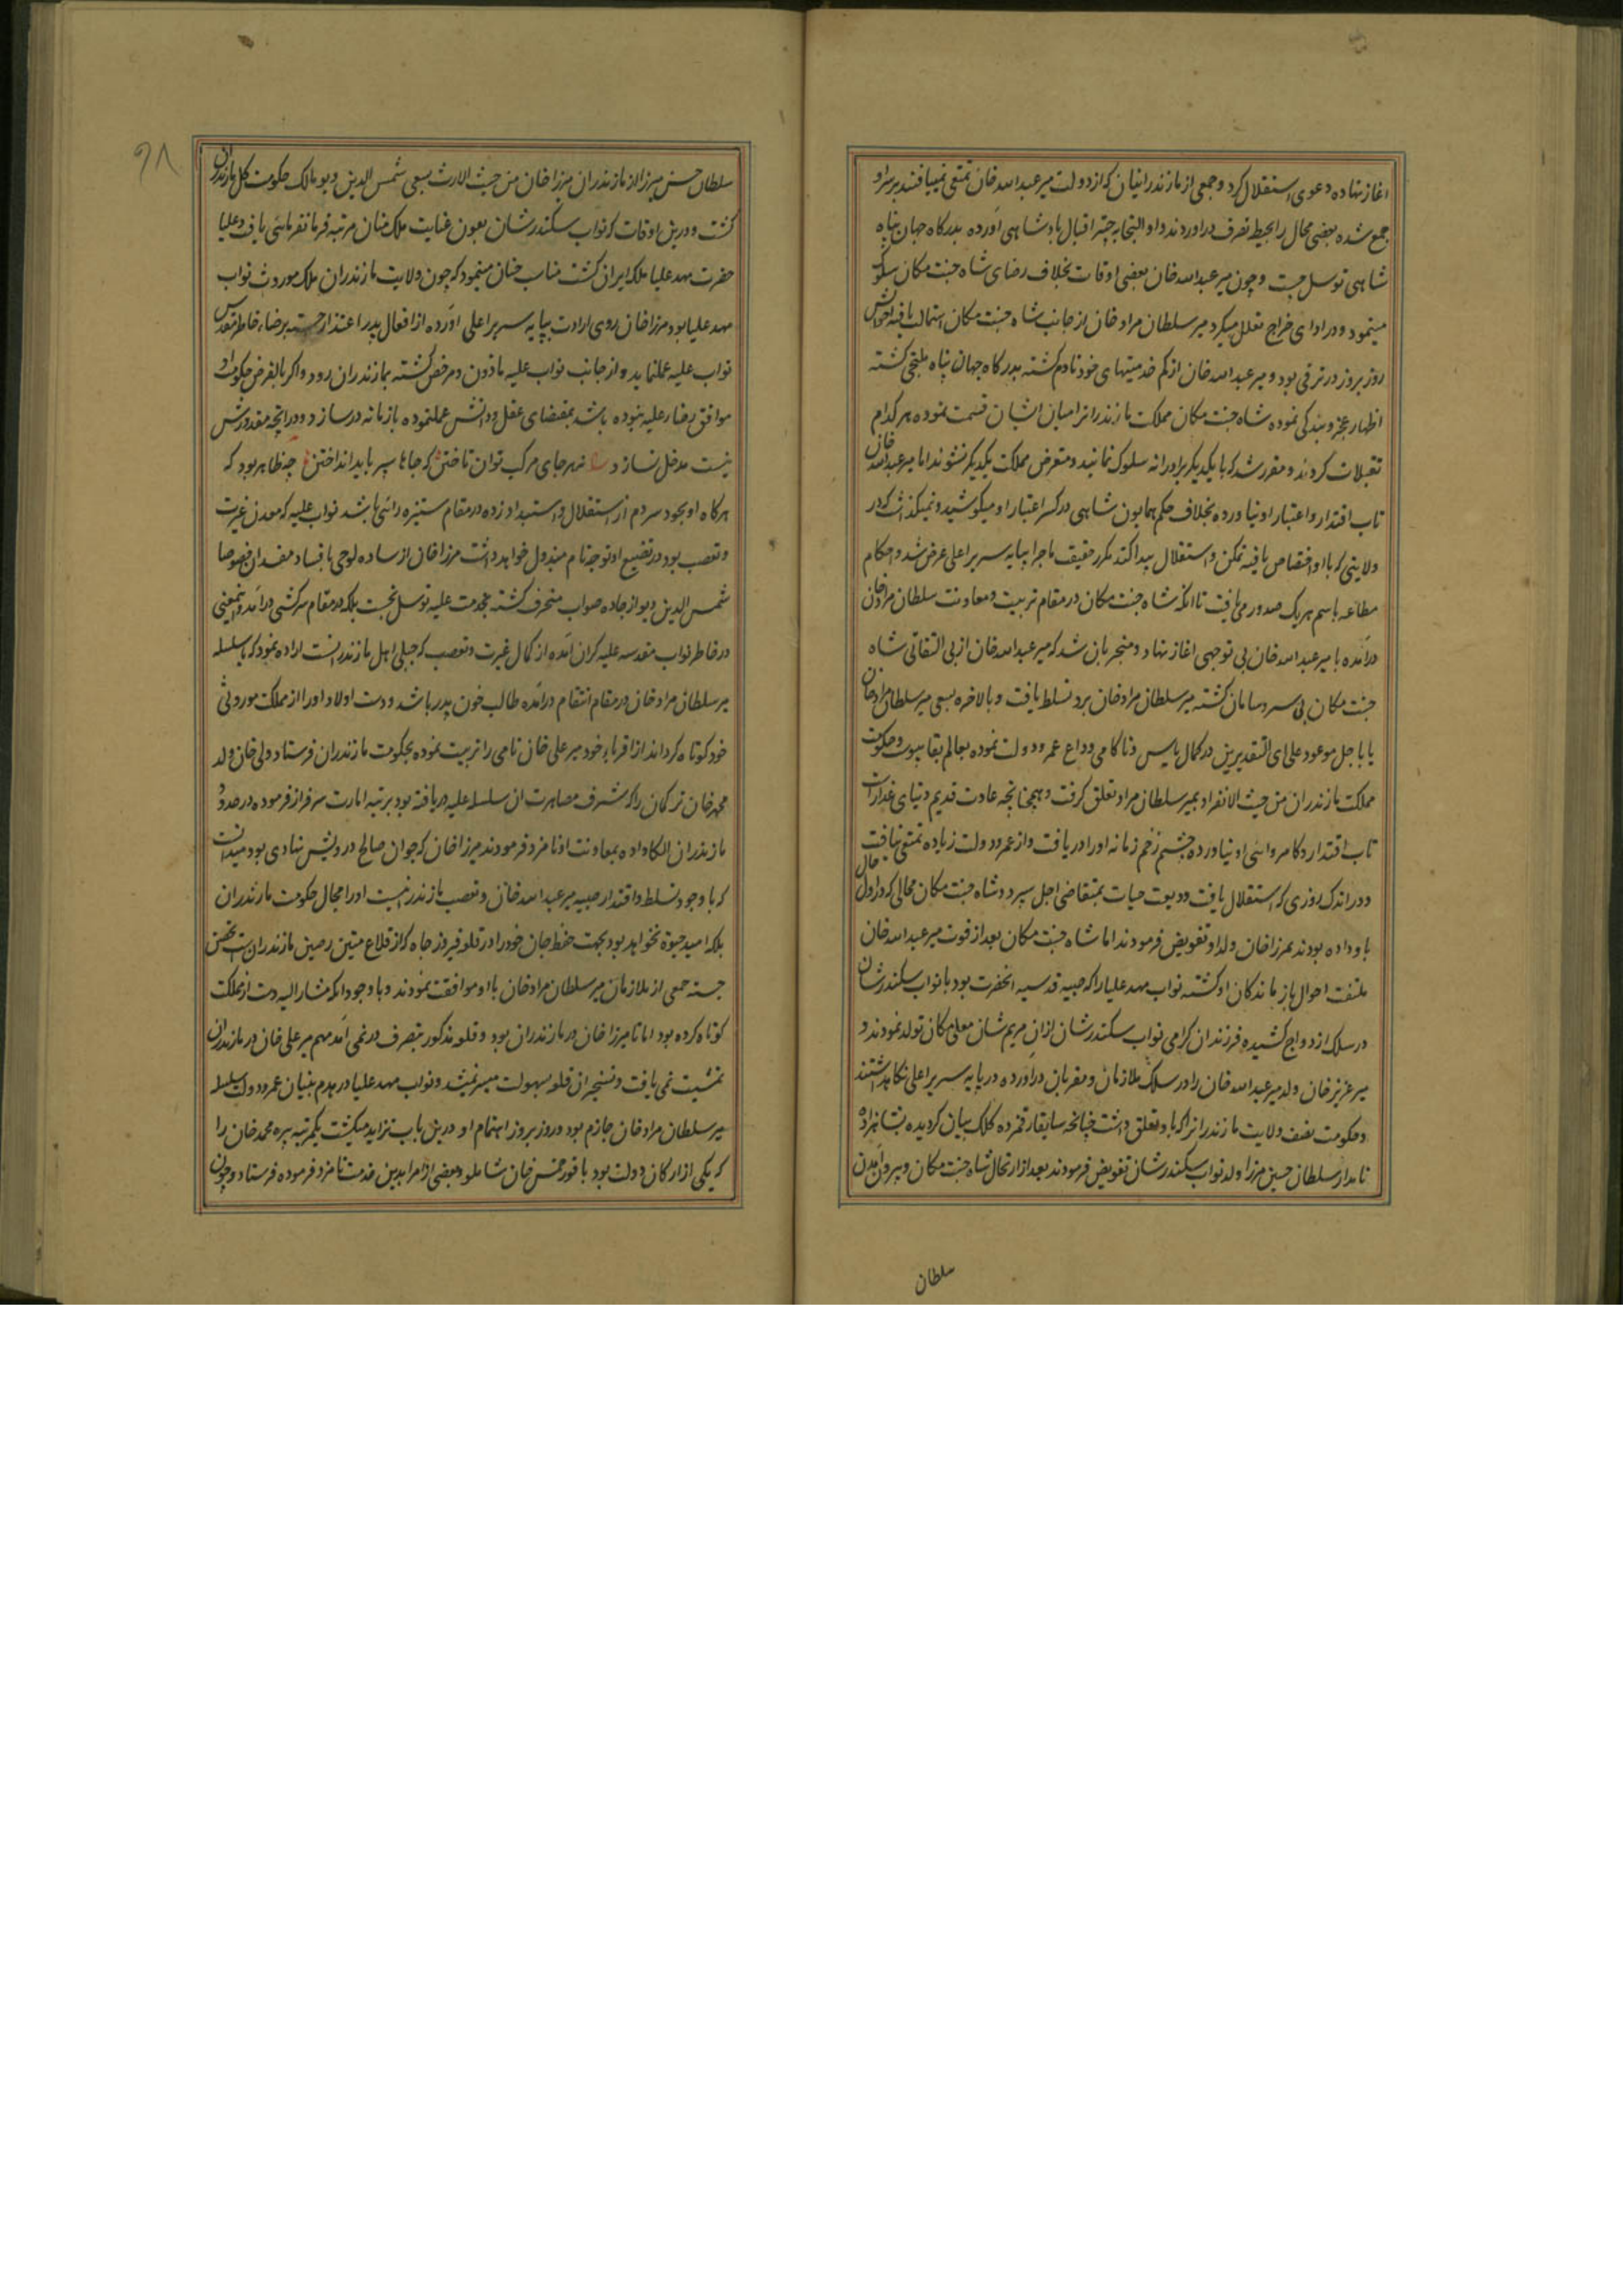 اغاز نهاده دعوی استقلال کرد و جمعی از مازندرانیان که از دولت میر عبدالله خان تمتعی نمییافتند بر سر او
جمع شده بعضی محال را بحیطه تصرف در اوردند و او التجا به چتر اقبال پادشاهی اورده بدرکاه جهان پناه
شاهی توسل جست و چون میر عبدالله خان بعضی اوقات بخلاف رضای شاه جنت مکان سلوک
مینمود و در ادای خراج تعلل میکرد میر سلطان مراد خان از جانب شاه جنت مکان استمالت یافته احوالش
روز بروز در ترقی بود و میر عبدالله خان از کم خدمتیهای خود نادم کشته بدرکاه جهان پناه ملتجی کشته
اظهار عجز و بندکی نموده شاه جنت مکان مملکت مازندرانرا میان ایشان قسمت نموده هر کدام
تقبلات کردند و مقرر شد که با یکدیکر برادرانه سلوک نمایند و متعرض مملکت یکدیکر نشوند اما میر عبدالله خان
تاب اقتدار و اعتبار او نیاورده بخلاف حکم همایون شاهی در کسر اعتبار او میکوشید و نمیکذاشت که در
ولایتی که باو اختصاص یافته تمکن و استقلال پیدا کند مکرر حقیقت ماجرا بپایه سریر اعلی عرض شد و احکام
مطاعه باسم هر یک صدور می یافت تا انکه شاه جنت مکان در مقام تربیت و معاونت سلطان مراد خان
درآمده با میر عبدالله خان بی توجهی اغاز نهاد و منجر بان شد که میر عبدالله خان از بی التفاتی شاه
جنت مکان بی سر و سامان کشته میر سلطان مراد خان برو تسلط یافت و بالاخره بسعی میر سلطان مراد خان
یا باجل موعود علی ای التقدیرین در کمال یاس و ناکامی وداع عمر و دولت نموده بعالم بقا پیوست و حکومت
مملکت مازندران من حیث الانفراد بمیر سلطان مراد تعلق کرفت و همچنانچه عادت قدیم دنیای غدارست
تاب اقتدار و کامروایی او نیاورده چشم زخم زمانه او را دریافت و از عمر و دولت زیاده تمتعی نیافت
و در اندک روزی که استقلال یافت ودیعت حیات بمتقاضی اجل سپرد و شاه جنت مکان محالی که در اول حال
باو داده بودند بمرزا خان ولد او تفویض فرمودند اما شاه جنت مکان بعد از فوت میر عبدالله خان
ملتفت احوال بازماندکان او کشته نواب مهد علیا را که صبیه قدسیه انحضرت بود با نواب سکندر شان
در سلک ازدواج کشیده فرزندان کرامی نواب سکندر شان ازان مریم شان معلی مکان تولد نمودند و
میر عزیز خان ولد میر عبدالله خان را در سلک ملازمان و مقربان دراورده در پایه سریر اعلی نکاهداشتند
و حکومت نصف ولایت مازندرانرا که باو تعلق داشت چنانچه سابقا رقمزده کلک بیان کردیده بشاهزاده
نامدار سلطان حسین مرزا ولد نواب سکندر شان تفویض فرمودند بعد از ارتحال شاه جنت مکان و بیرون آمدن
سلطان
۹۸
سلطان حسن میرزا از مازندران میرزا خان من حیث الارث بسعی شمس الدین دیو مالک حکومت کل مازندران
کشت و درین اوقات که نواب سکندر شان بعون عنایت ملک منان مرتبه فرمانفرمائی یافت و علیا
حضرت مهد علیا ملکه ایران کشت مناسب چنان مینمود که چون ولایت مازندران ملک موروث نواب
مهد علیا بود مرزا خان روی ارادت بپایه سریر اعلی اورده از افعال پدر اعتذار جسته برضاء خاطر مقدس
نواب علیه عمل نماید و از جانب نواب علیه ماذون و مرخص کشته بمازندران رود و اکر بالفرض حکومت او
موافق رضاء علیه نبوده باشد بمقتضای عقل و دانش عمل نموده با زمانه در سازد و در انچه مقدورش
نیست مدخل نسازد نه هر جای مرکب توان تاختن که جاها سپر باید انداختن چه ظاهر بود که
هر کاه او بخود سر دم از استقلال و استبداد زده در مقام ستیزه رائی باشد نواب علیه که معدن غیرت
و تعصب بود در تضییع او توجه تام مبذول خواهد داشت مرزا خان از ساده لوحی بافساد مفسدان خصوصا
شمس الدین دیو از جاده صواب منحرف کشته بخدمت علیه توسل نجست بلکه در مقام سرکشی درآمد و اینمعنی
در خاطر نواب مقدسه علیه کران آمده از کمال غیرت و تعصب که جبلی اهل مازندرانست اراده نمود که با سلسله
میر سلطان مراد خان در مقام انتقام درآمده طالب خون پدر باشد و دست اولاد او را از مملکت موروثی
خود کوتاه کرداند از اقرباء خود میر علی خان نامی را تربیت نموده بحکومت مازندران فرستاد و ولی خان ولد
محمد خان ترکمان را که شرف مصاهرت ان سلسله علیه دریافته بود برتبه امارت سرفراز فرموده در حدود
مازندران الکا داده بمعاونت او نامزد فرمودند میرزا خان که جوان صالح درویش نهادی بود میدانست
که با وجود تسلط و اقتدار صبیه میر عبدالله خان و تعصب مازندرانیت او را مجال حکومت مازندران
بلکه امید حیوة نخواهد بود بجهت حفظ جان خود را در قلعه فیروز جاه که از قلاع متین رصین مازندران است تحصن
جسته جمعی از ملازمان میر سلطان مراد خان با او موافقت نمودند و با وجود انکه مشار الیه دست از مملکت
کوتاه کرده بود اما تا میرزا خان در مازندران بود و قلعه مذکور بتصرف در نمی آمد مهم میر علی خان در مازندران
تمشیت نمی یافت و تسخیر ان قلعه بسهولت میسر نمیشد و نواب مهد علیا در هدم بنیان عمر و دولت سلسله
میر سلطان مراد خان جازم بود و روز بروز اهتمام او درین باب تزاید میکشت یکمرتبه پیره محمد خان را
که یکی از ارکان دولت بود با قورخمس خان شاملو و بعضی از امرا بدین خدمت نامزد فرموده فرستاد و چون